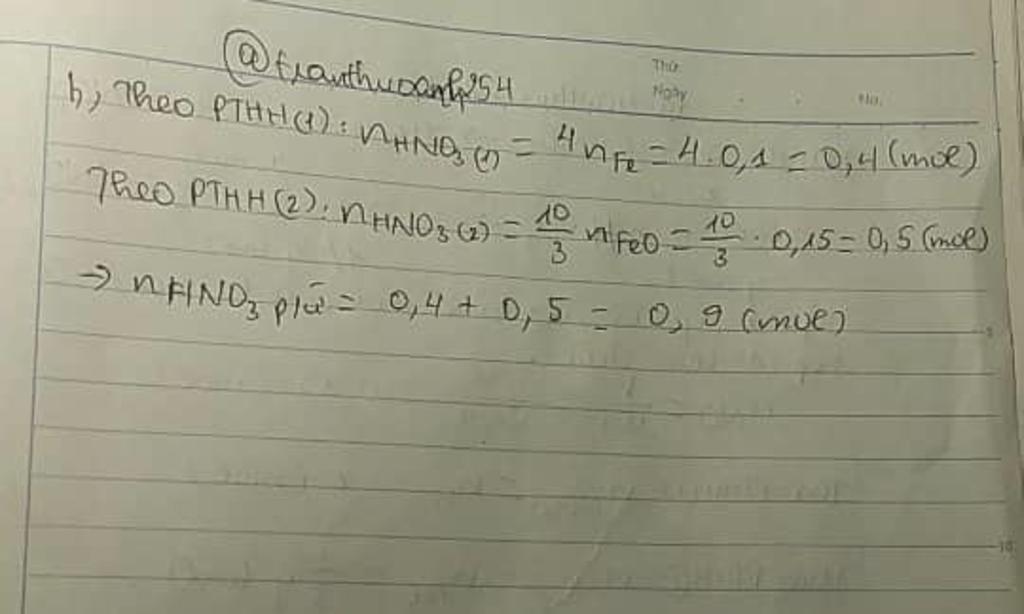 Thứ
Ngày
No.
b, Theo PTHH(1): nHNO3 (1) = 4 nFe = 4 . 0,1 = 0,4 (mol)
Theo PTHH(2): nHNO3 (2) = 10/3 nFeO = 10/3 . 0,15 = 0,5 (mol)
→ nHNO3 p/ứ = 0,4 + 0,5 = 0,9 (mol)
10